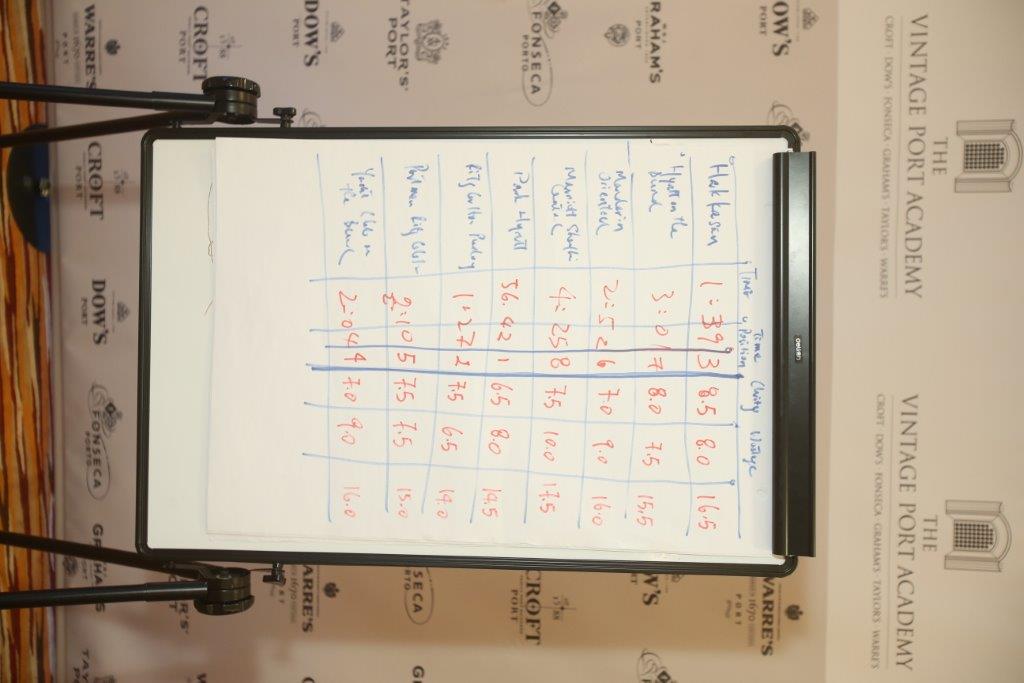 THE
VINTAGE PORT ACADEMY
CROFT · DOW'S · FONSECA · GRAHAM'S · TAYLOR'S · WARRE'S
THE
VINTAGE PORT ACADEMY
CROFT · DOW'S · FONSECA · GRAHAM'S · TAYLOR'S · WARRE'S
DOW'S
PORT
WARRE'S
1670
PORT
GRAHAM'S
FONSECA
PORTO
TAYLOR'S
PORT
DOW'S
PORT
CROFT
PORT
WARRE'S
1670
PORT
deli
Time Time Position Clarity Wastage
Hakkasan 1:39 3 8.5 8.0 16.5
Hyatt on the
Bund 3:01 7 8.0 7.5 15.5
Mandarin
Oriental 2:52 6 7.0 9.0 16.0
Marriott
4:25 8 7.5 10.0 17.5
Park Hyatt 56.42 1 6.5 8.0 14.5
Ritz Carlton 1:27 2 7.5 6.5 14.0
Ritz 2:10 5 7.5 7.5 15.0
Club on
the Bund 2:04 4 7.0 9.0 16.0
CROFT
1588
PORT
SECA
PORTO
WARRE'S
1670
PORT
CROFT
1588
DOW'S
PORT
FONSECA
PORTO